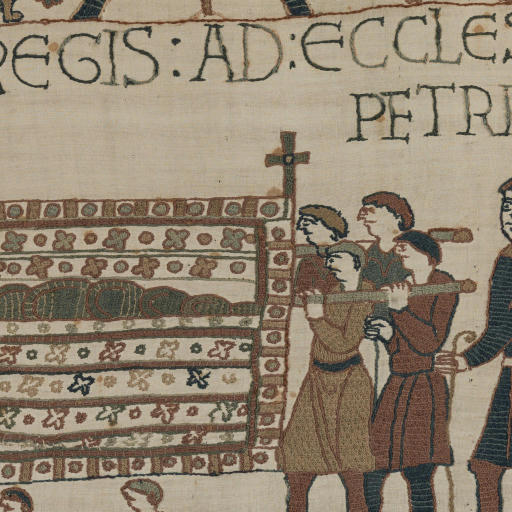 REGIS : AD : ECCLES
PETRI